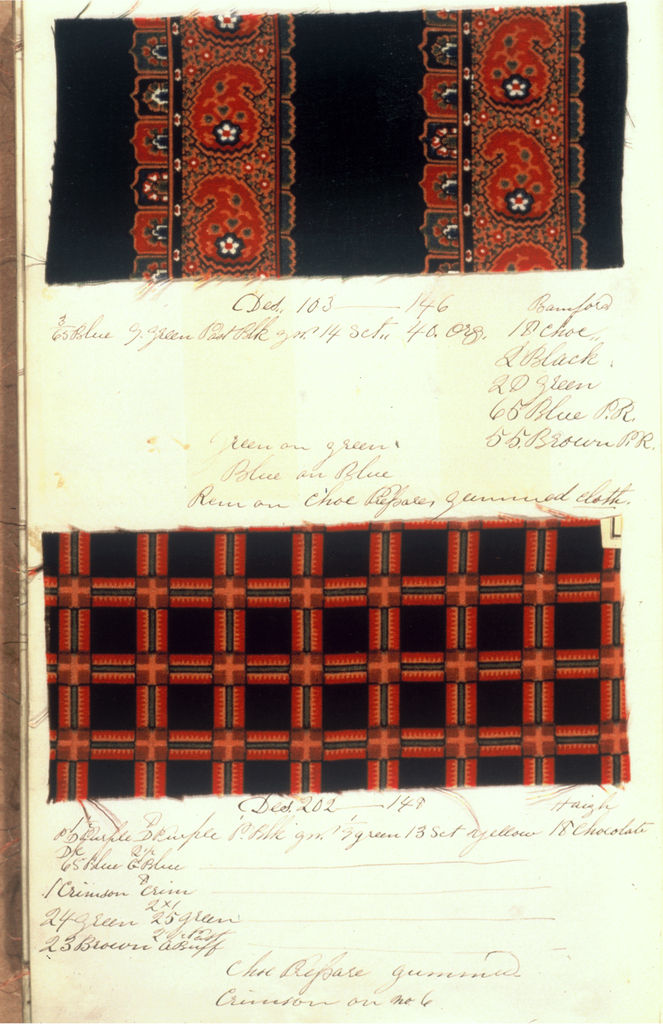 Des. 103 — 146 Bamford
65 Blue Green Past Blk 14 Sct,, 40. Org. 18 Choc,,
2 Black.
20 Green
65 Blue P.R.
55. Brown P.R.
Green on green.
Blue on Blue
Rem on Choc Prepare gummed cloth.
L
Des. 202 — 148 Haigh
Purple Purple P. Blk green 13 Sct Yellow 18 Chocolate
65 Blue Blue
1 Crimson Crim
24 Green 25 green
23 Brown Buff
Choc Prepare gummed
Crimson on no 6